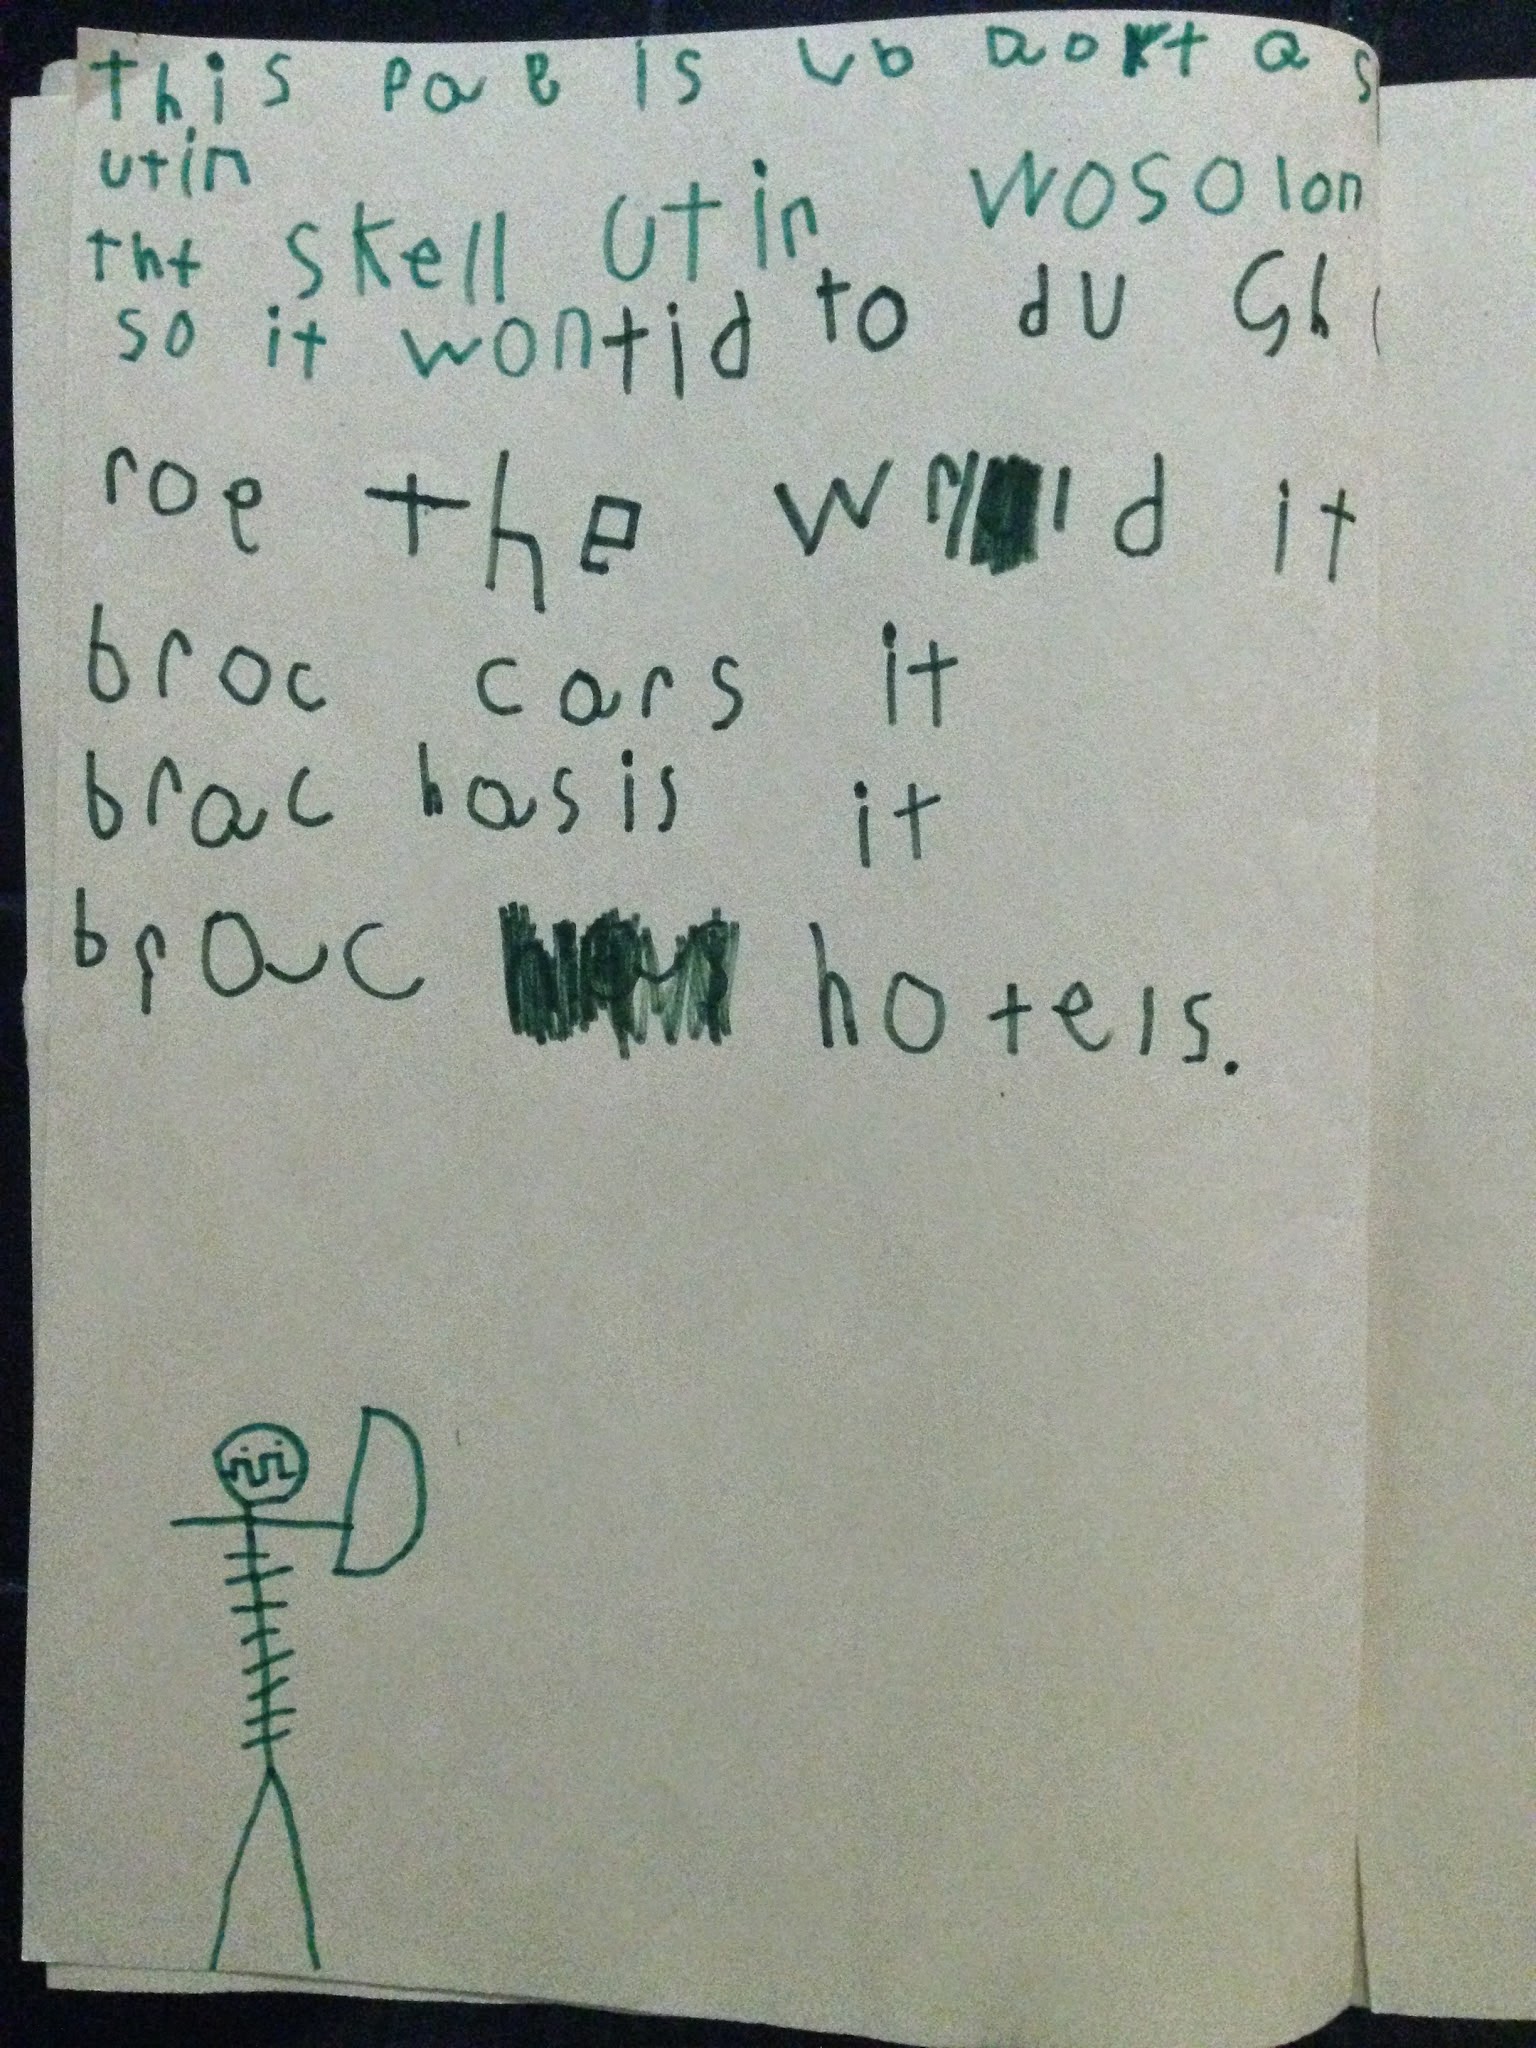 this pae is ub aout a s
utin
tht skell utin wosolon
so it wontid to du Gh
roe the wrld it
broc cars it
brac hasis it
brac hotels.